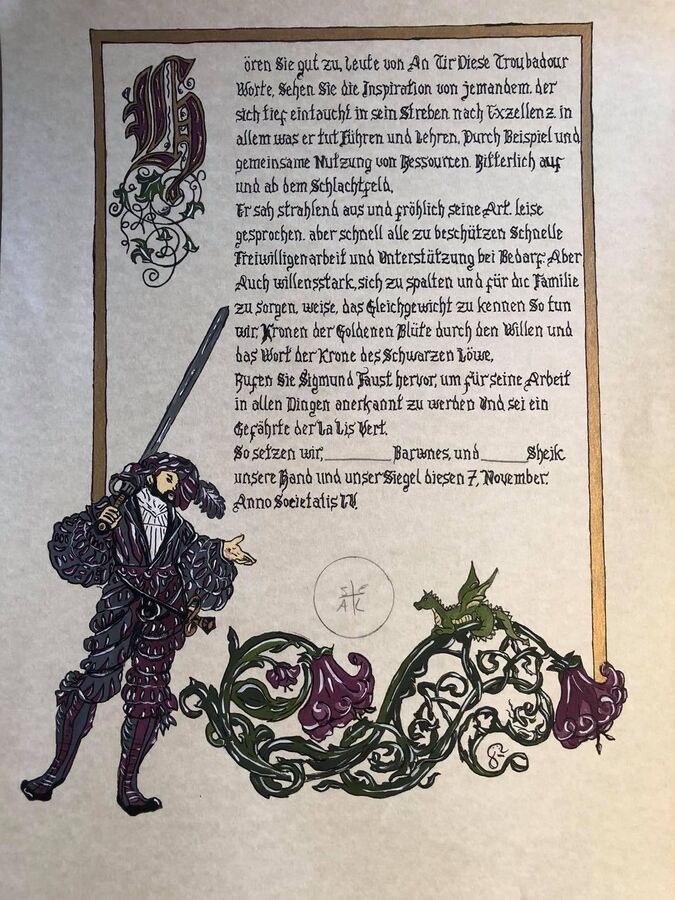 Hören Sie gut zu, Leute von An Tir Diese Troubadour
Worte, Sehen Sie die Inspiration von jemandem, der
sich tief eintaucht in sein Streben nach Exzellenz. in
allem was er tut Führen und Lehren, Durch Beispiel und
gemeinsame Nutzung von Ressourcen. Ritterlich auf
und ab dem Schlachtfeld,
Er sah strahlend aus und fröhlich seine Art. leise
gesprochen. aber schnell alle zu beschützen Schnelle
Freiwilligenarbeit und Unterstützung bei Bedarf. Aber
Auch willensstark, sich zu spalten und für die Familie
zu sorgen, weise, das Gleichgewicht zu kennen So tun
wir, Kronen der Goldenen Blüte durch den Willen und
das Wort der Krone des Schwarzen Löwe,
Rufen Sie Sigmund Faust hervor, um für seine Arbeit
in allen Dingen anerkannt zu werden Und sei ein
Gefährte der La Lis Vert.
So setzen wir, ________ Barwnes, und _____ Sheik
unsere Hand und unser Siegel diesen 7, November.
Anno Societatis LV.
S E
A L